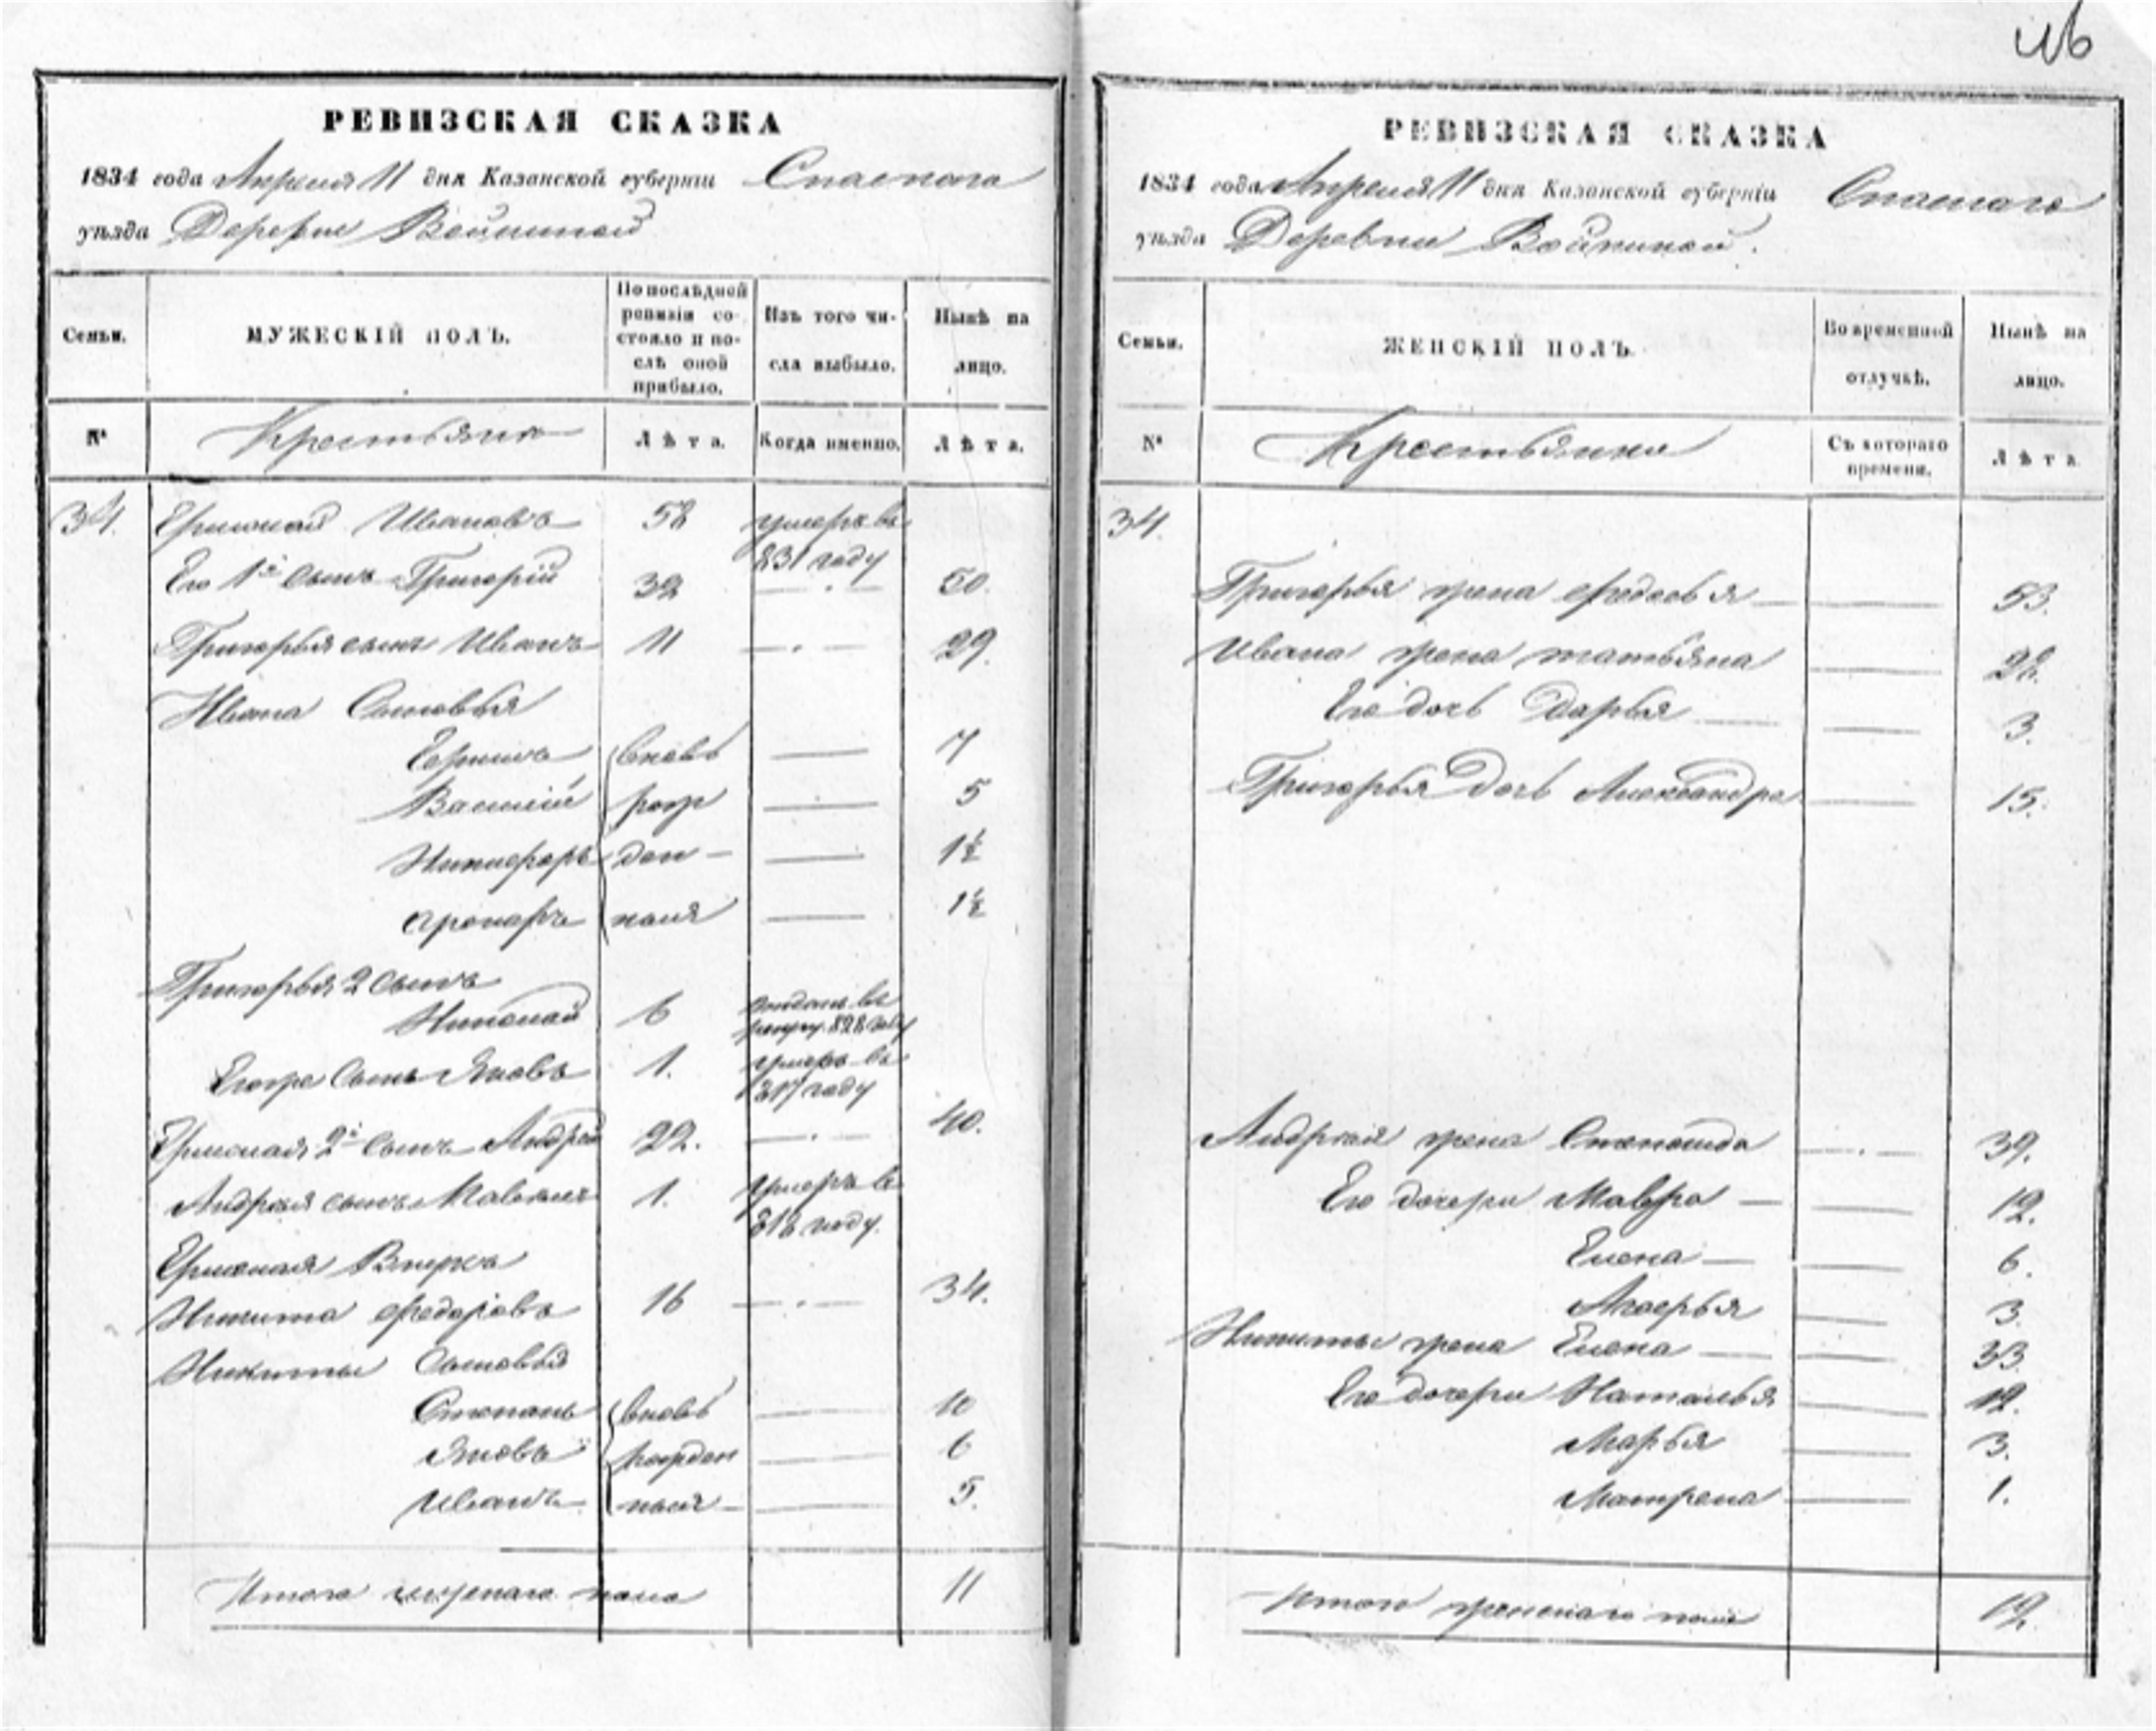 РЕВИЗСКАЯ СКАЗКА
1834 года Апреля 11 дня Казанской губерніи Спаского
уѣзда Деревни Войкиной
Семьи.
МУЖЕСКІЙ ПОЛЪ.
По послѣдней
ревизіи со-
стояло и по-
слѣ оной
прибыло.
Изъ того чи-
сла выбыло.
Нынѣ на
лицо.
№
Крестьяне
Лѣта.
Когда именно.
Лѣта.
34. Ермолай Ивановъ 58 умеръ въ
831 году
Его 1й сынъ Григорій 32 50.
Григорья сынъ Иванъ 11 29.
Ивана Сыновья
вновь 7
Василій рож 5
Никифоръ ден 1½
ныя 1½
Григорья 2 сынъ
Николай 6 отданъ въ
рекру. 828 году
сынъ Яковъ 1. умеръ въ
817 году
Ермолая 2й сынъ Андрей 22. 40.
Андрея сынъ 1. умеръ въ
818 году.
Ермолая Внукъ
Никита Федоровъ 16 34.
Никиты Сыновья
Степанъ вновь 10
Яковъ рожден 6
Иванъ ныя 5.
Итого мужескаго пола 11
46
РЕВИЗСКАЯ СКАЗКА
1834 года Апреля 11 дня Казанской губерніи Спаского
уѣзда Деревни Войкиной.
Семьи.
ЖЕНСКІЙ ПОЛЪ.
Во временной
отлучкѣ.
Нынѣ на
лицо.
№
Крестьянки
Съ котораго
времени.
Лѣта
34.
Григорья жена Федосья 53.
Ивана жена татьяна 28.
Его дочь Дарья 3.
Григорья Дочь Александра 15.
Андрея жена 39.
Его дочери Мавра 12.
Елена 6.
3.
Никиты жена Елена 33
Его дочери Наталья 12.
Марья 3.
Матрена 1.
Итого женскаго пола 12